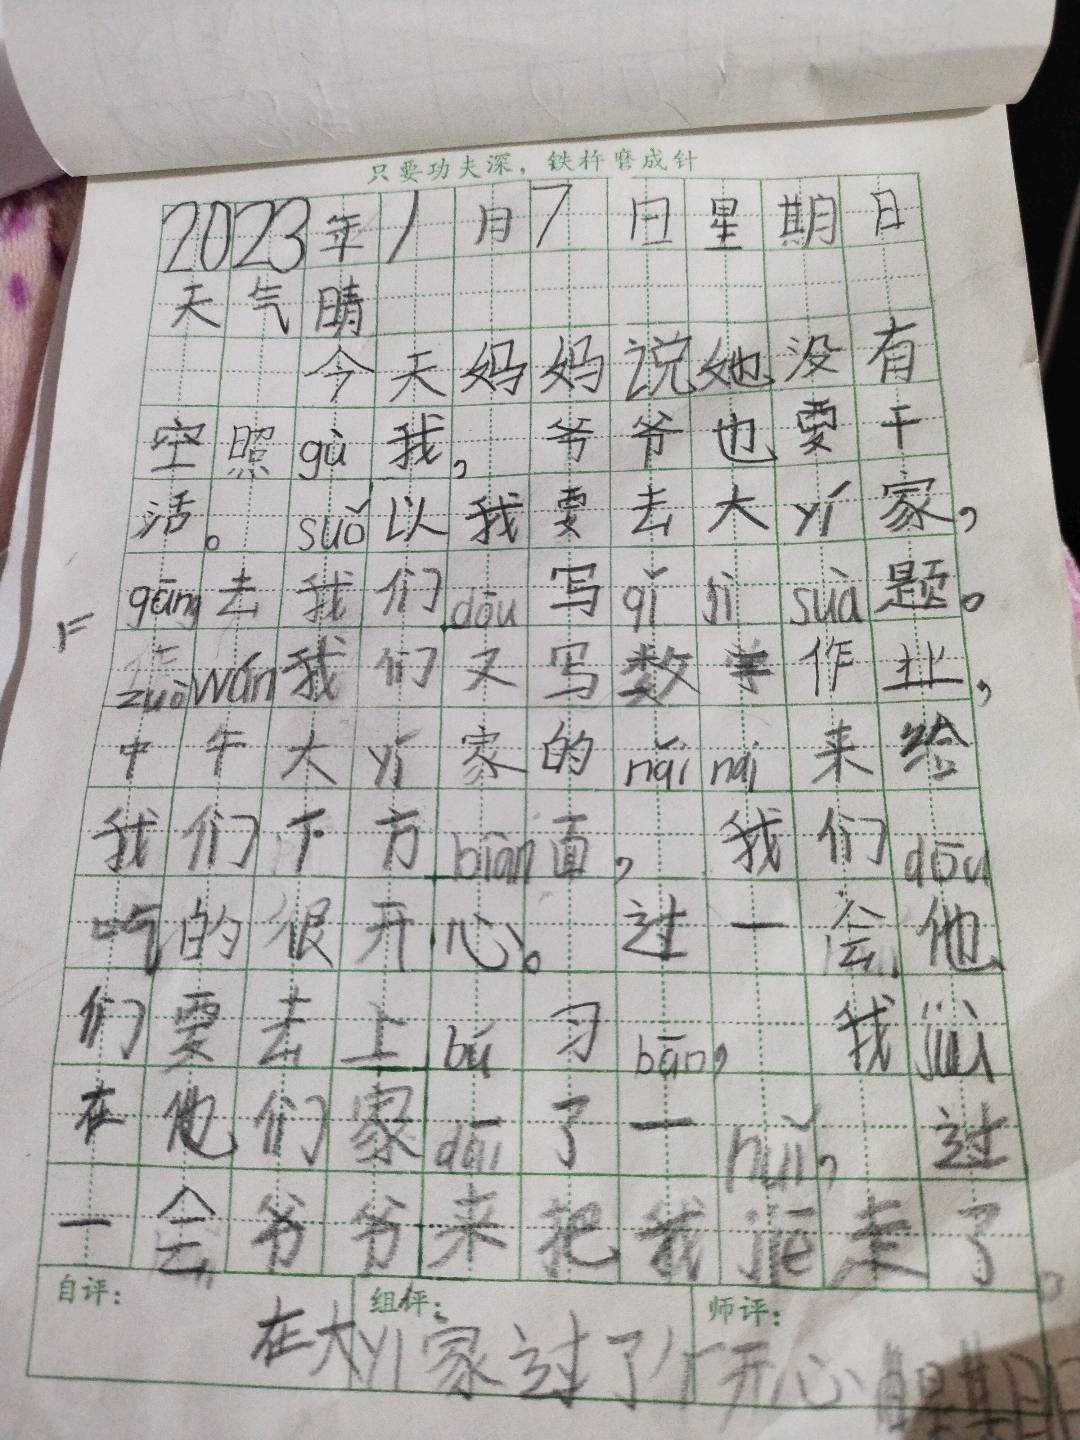 只要功夫深，铁杵磨成针
2023年1月7日星期日
天气晴
今天妈妈说她没有
空照gù我，爷爷也要干
活。suǒ以我要去大yí家，
gāng去我们dōu写qǐ jì suà题。
zuò wán我们又写数学作业，
中午大yí家的nǎi nai来给
我们下方biàn面，我们dōu
吃的很开心。过一会他
们要去上bǔ习bān，我jiù
在他们家dāi了一huǐ，过
一会爷爷来把我jiē走了。
自评：
组评：
师评：
在大yí家过了个开心的星期日